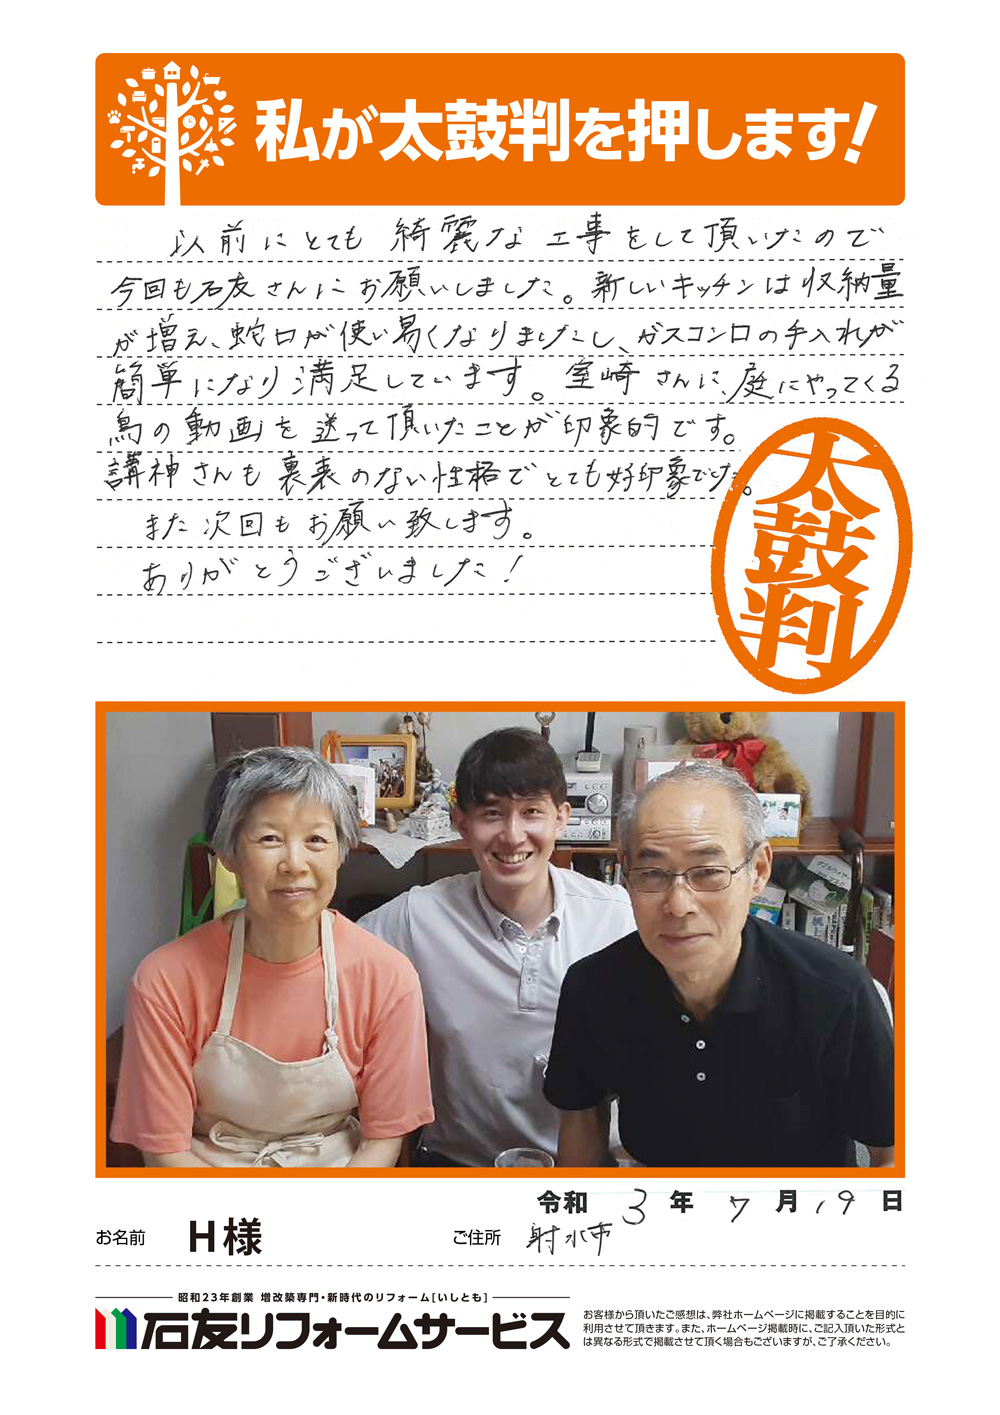 私が太鼓判を押します!
以前にとても綺麗な工事をして頂いたので
今回も石友さんにお願いしました。新しいキッチンは収納量
が増え、蛇口が使い易くなりましたし、ガスコンロの手入れが
簡単になり満足しています。室崎さんに、庭にやってくる
鳥の動画を送って頂いたことが印象的です。
講神さんも裏表のない性格でとても好印象でした。
また次回もお願い致します。
ありがとうございました!
太鼓判
令和 3 年 7 月 19 日
お名前 H様 ご住所 射水市
昭和23年創業 増改築専門・新時代のリフォーム[いしとも]
石友リフォームサービス
お客様から頂いたご感想は、弊社ホームページに掲載することを目的に
利用させて頂きます。また、ホームページ掲載時に、ご記入頂いた形式と
は異なる形式で掲載させて頂く場合もございますが、ご了承ください。